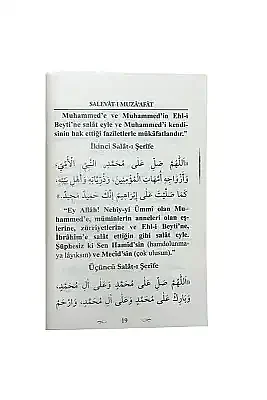 SALEVÂT-I MUZÂ'AFÂT
Muhammed'e ve Muhammed'in Ehl-i
Beyti'ne salât eyle ve Muhammed'i kendi-
sinin hak ettiği faziletlerle mükâfatlandır."
İkinci Salât-ı Şerîfe
«اَللّٰهُمَّ صَلِّ عَلَى مُحَمَّدٍ، النَّبِيِّ الْأُمِّيِّ،
وَأَزْوَاجِهِ أُمَّهَاتِ الْمُؤْمِنِينَ، وَذُرِّيَّاتِهِ وَأَهْلِ بَيْتِهِ،
كَمَا صَلَّيْتَ عَلَى إِبْرَاهِيمَ إِنَّكَ حَمِيدٌ مَجِيدٌ.»
"Ey Allâh! Nebiy-yi Ümmî olan Mu-
hammed'e, müminlerin anneleri olan eş-
lerine, zürriyetlerine ve Ehl-i Beyti'ne,
İbrâhîm'e salât ettiğin gibi salât eyle.
Şüphesiz ki Sen Hamîd'sin (hamdolunma-
ya lâyıksın) ve Mecîd'sin (çok ulusun)."
Üçüncü Salât-ı Şerîfe
«اَللّٰهُمَّ صَلِّ عَلَى مُحَمَّدٍ وَعَلَى آلِ مُحَمَّدٍ،
وَبَارِكْ عَلَى مُحَمَّدٍ وَعَلَى آلِ مُحَمَّدٍ، وَارْحَمْ
19